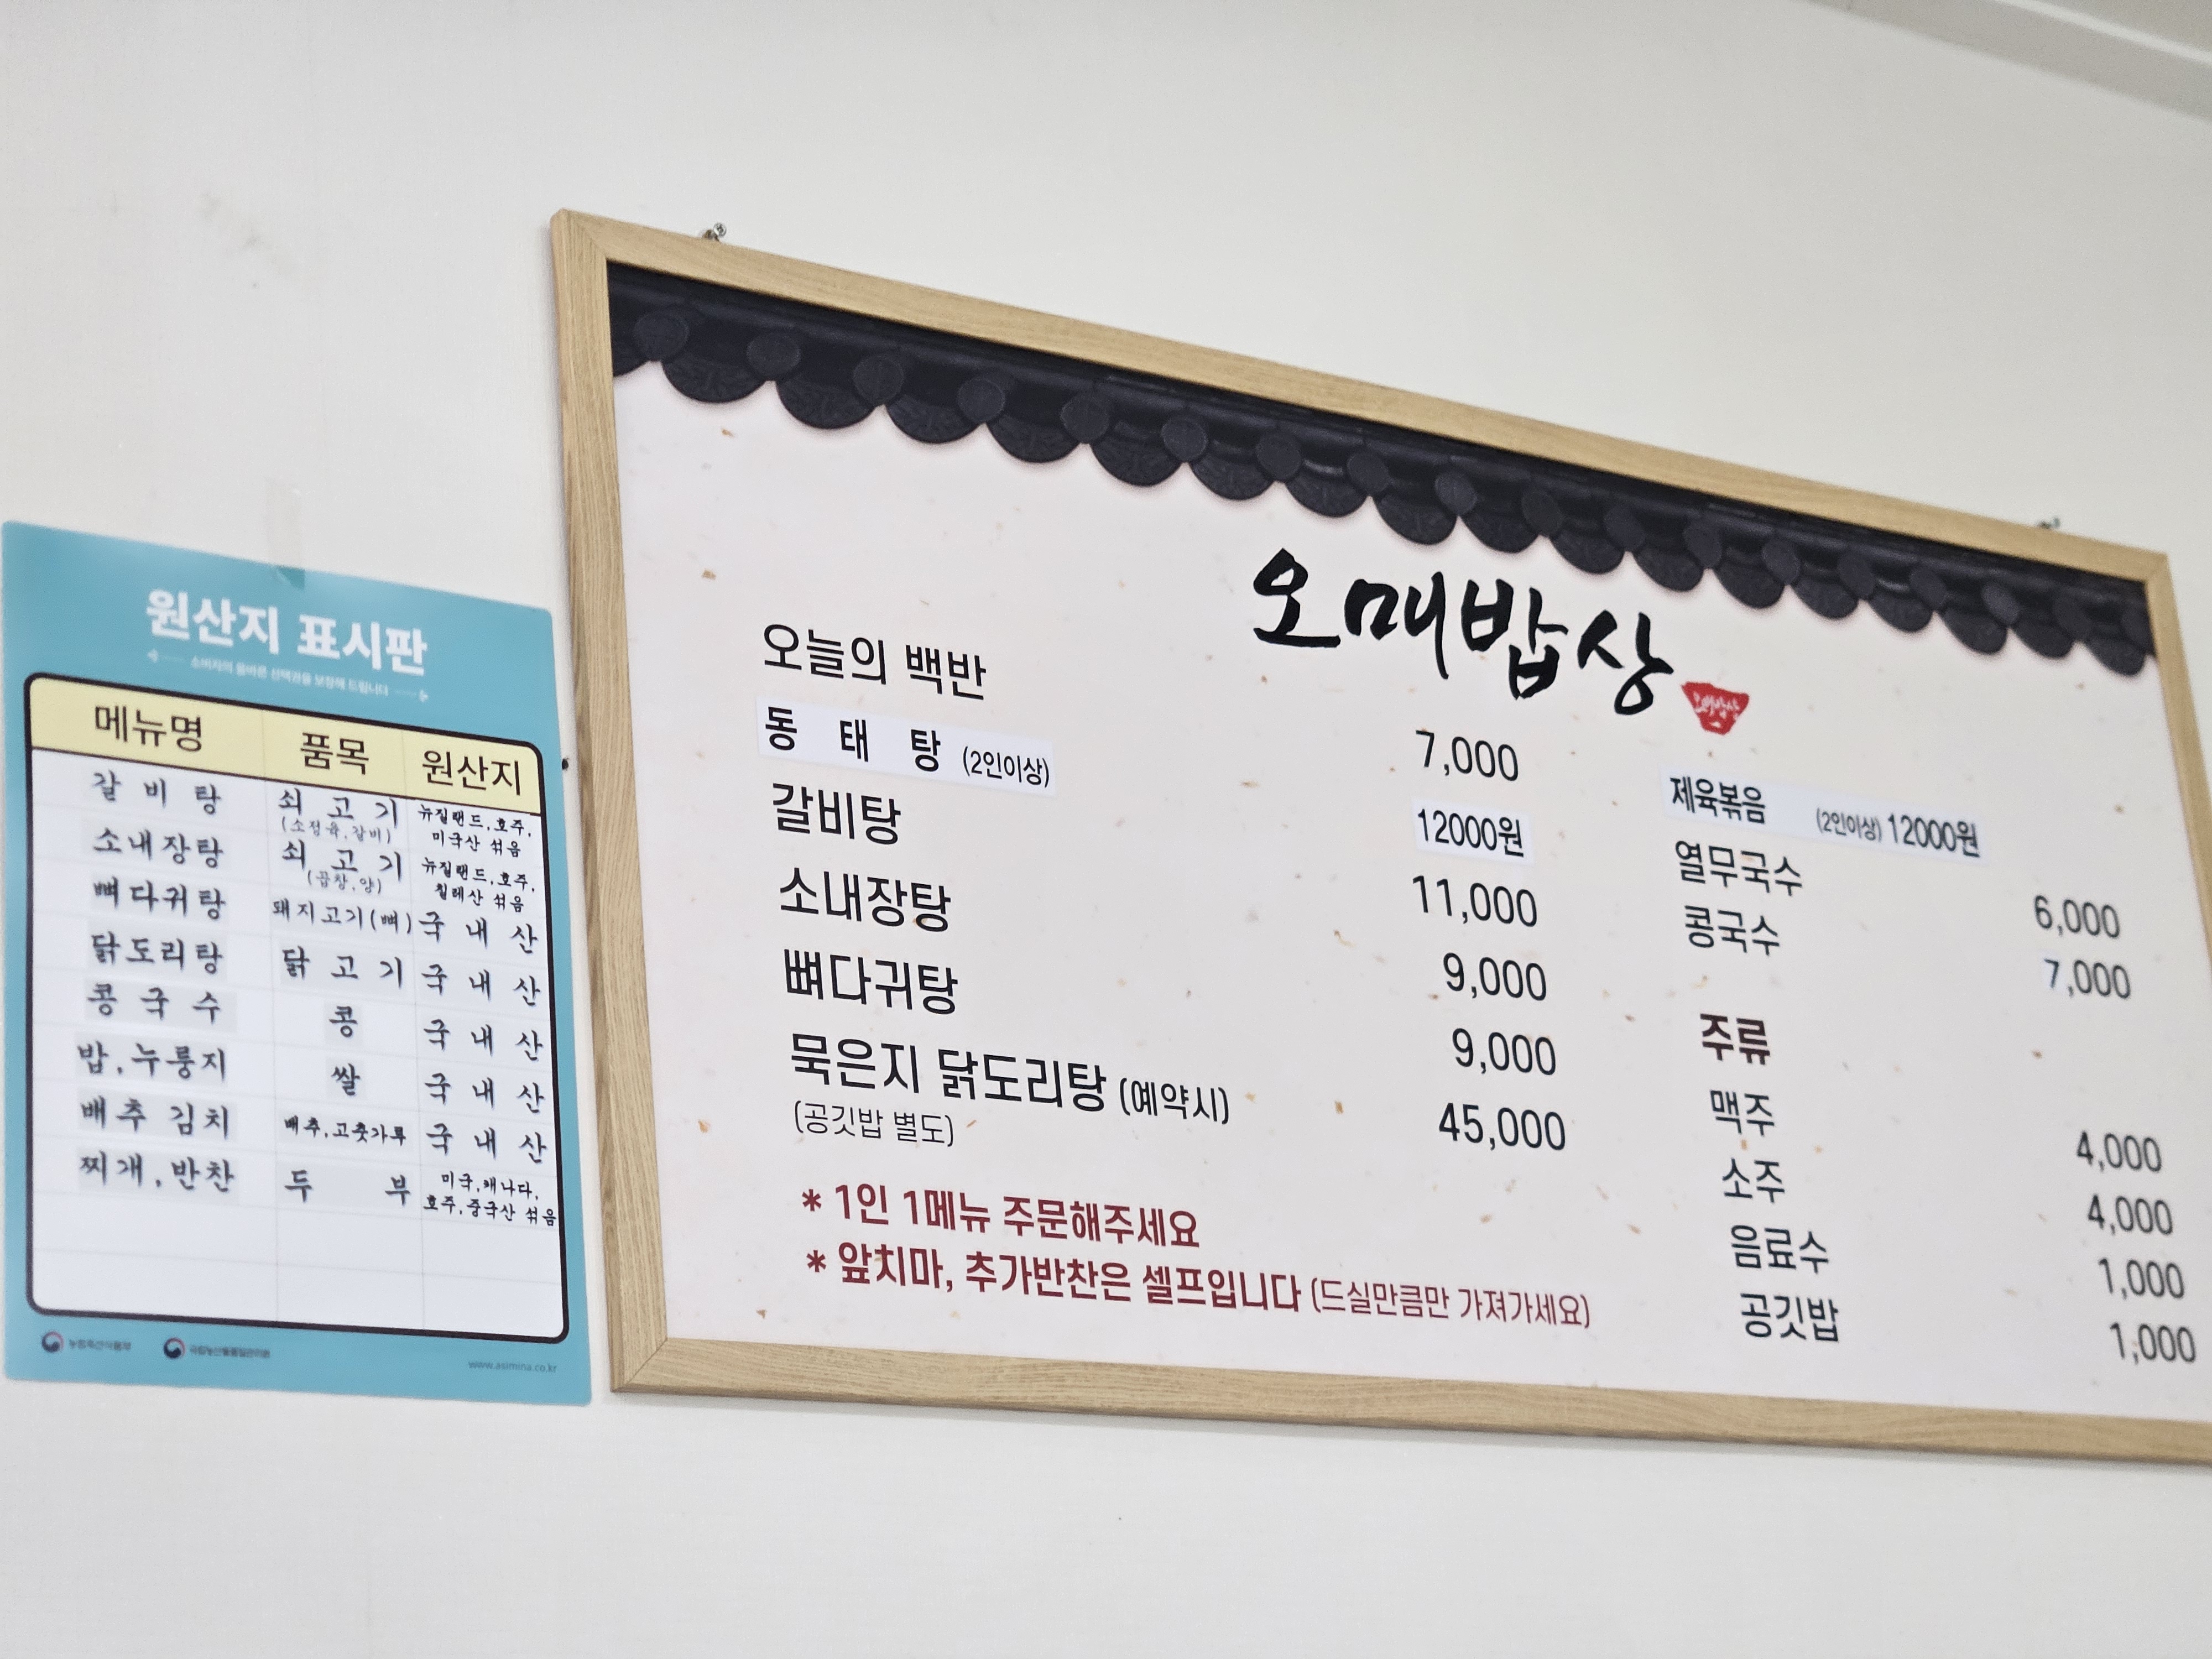 원산지 표시판
소비자의 올바른 선택권을 보장해 드립니다
메뉴명 품목 원산지
갈비탕 쇠고기 (소정육,갈비) 뉴질랜드,호주, 미국산 섞음
소내장탕 쇠고기 (곱창,양) 뉴질랜드,호주, 칠레산 섞음
뼈다귀탕 돼지고기(뼈) 국내산
닭도리탕 닭고기 국내산
콩국수 콩 국내산
밥,누룽지 쌀 국내산
배추김치 배추,고춧가루 국내산
찌개,반찬 두부 미국,캐나다, 호주,중국산 섞음
농림축산식품부 국립농산물품질관리원
www.asimina.co.kr
오매밥상
오매밥상
오늘의 백반 7,000
동태탕 (2인이상) 12000원
갈비탕 11,000
소내장탕 9,000
뼈다귀탕 9,000
묵은지 닭도리탕 (예약시) 45,000
(공깃밥 별도)
* 1인 1메뉴 주문해주세요
* 앞치마, 추가반찬은 셀프입니다 (드실만큼만 가져가세요)
제육볶음 (2인이상) 12000원
열무국수 6,000
콩국수 7,000
주류
맥주 4,000
소주 4,000
음료수 1,000
공깃밥 1,000